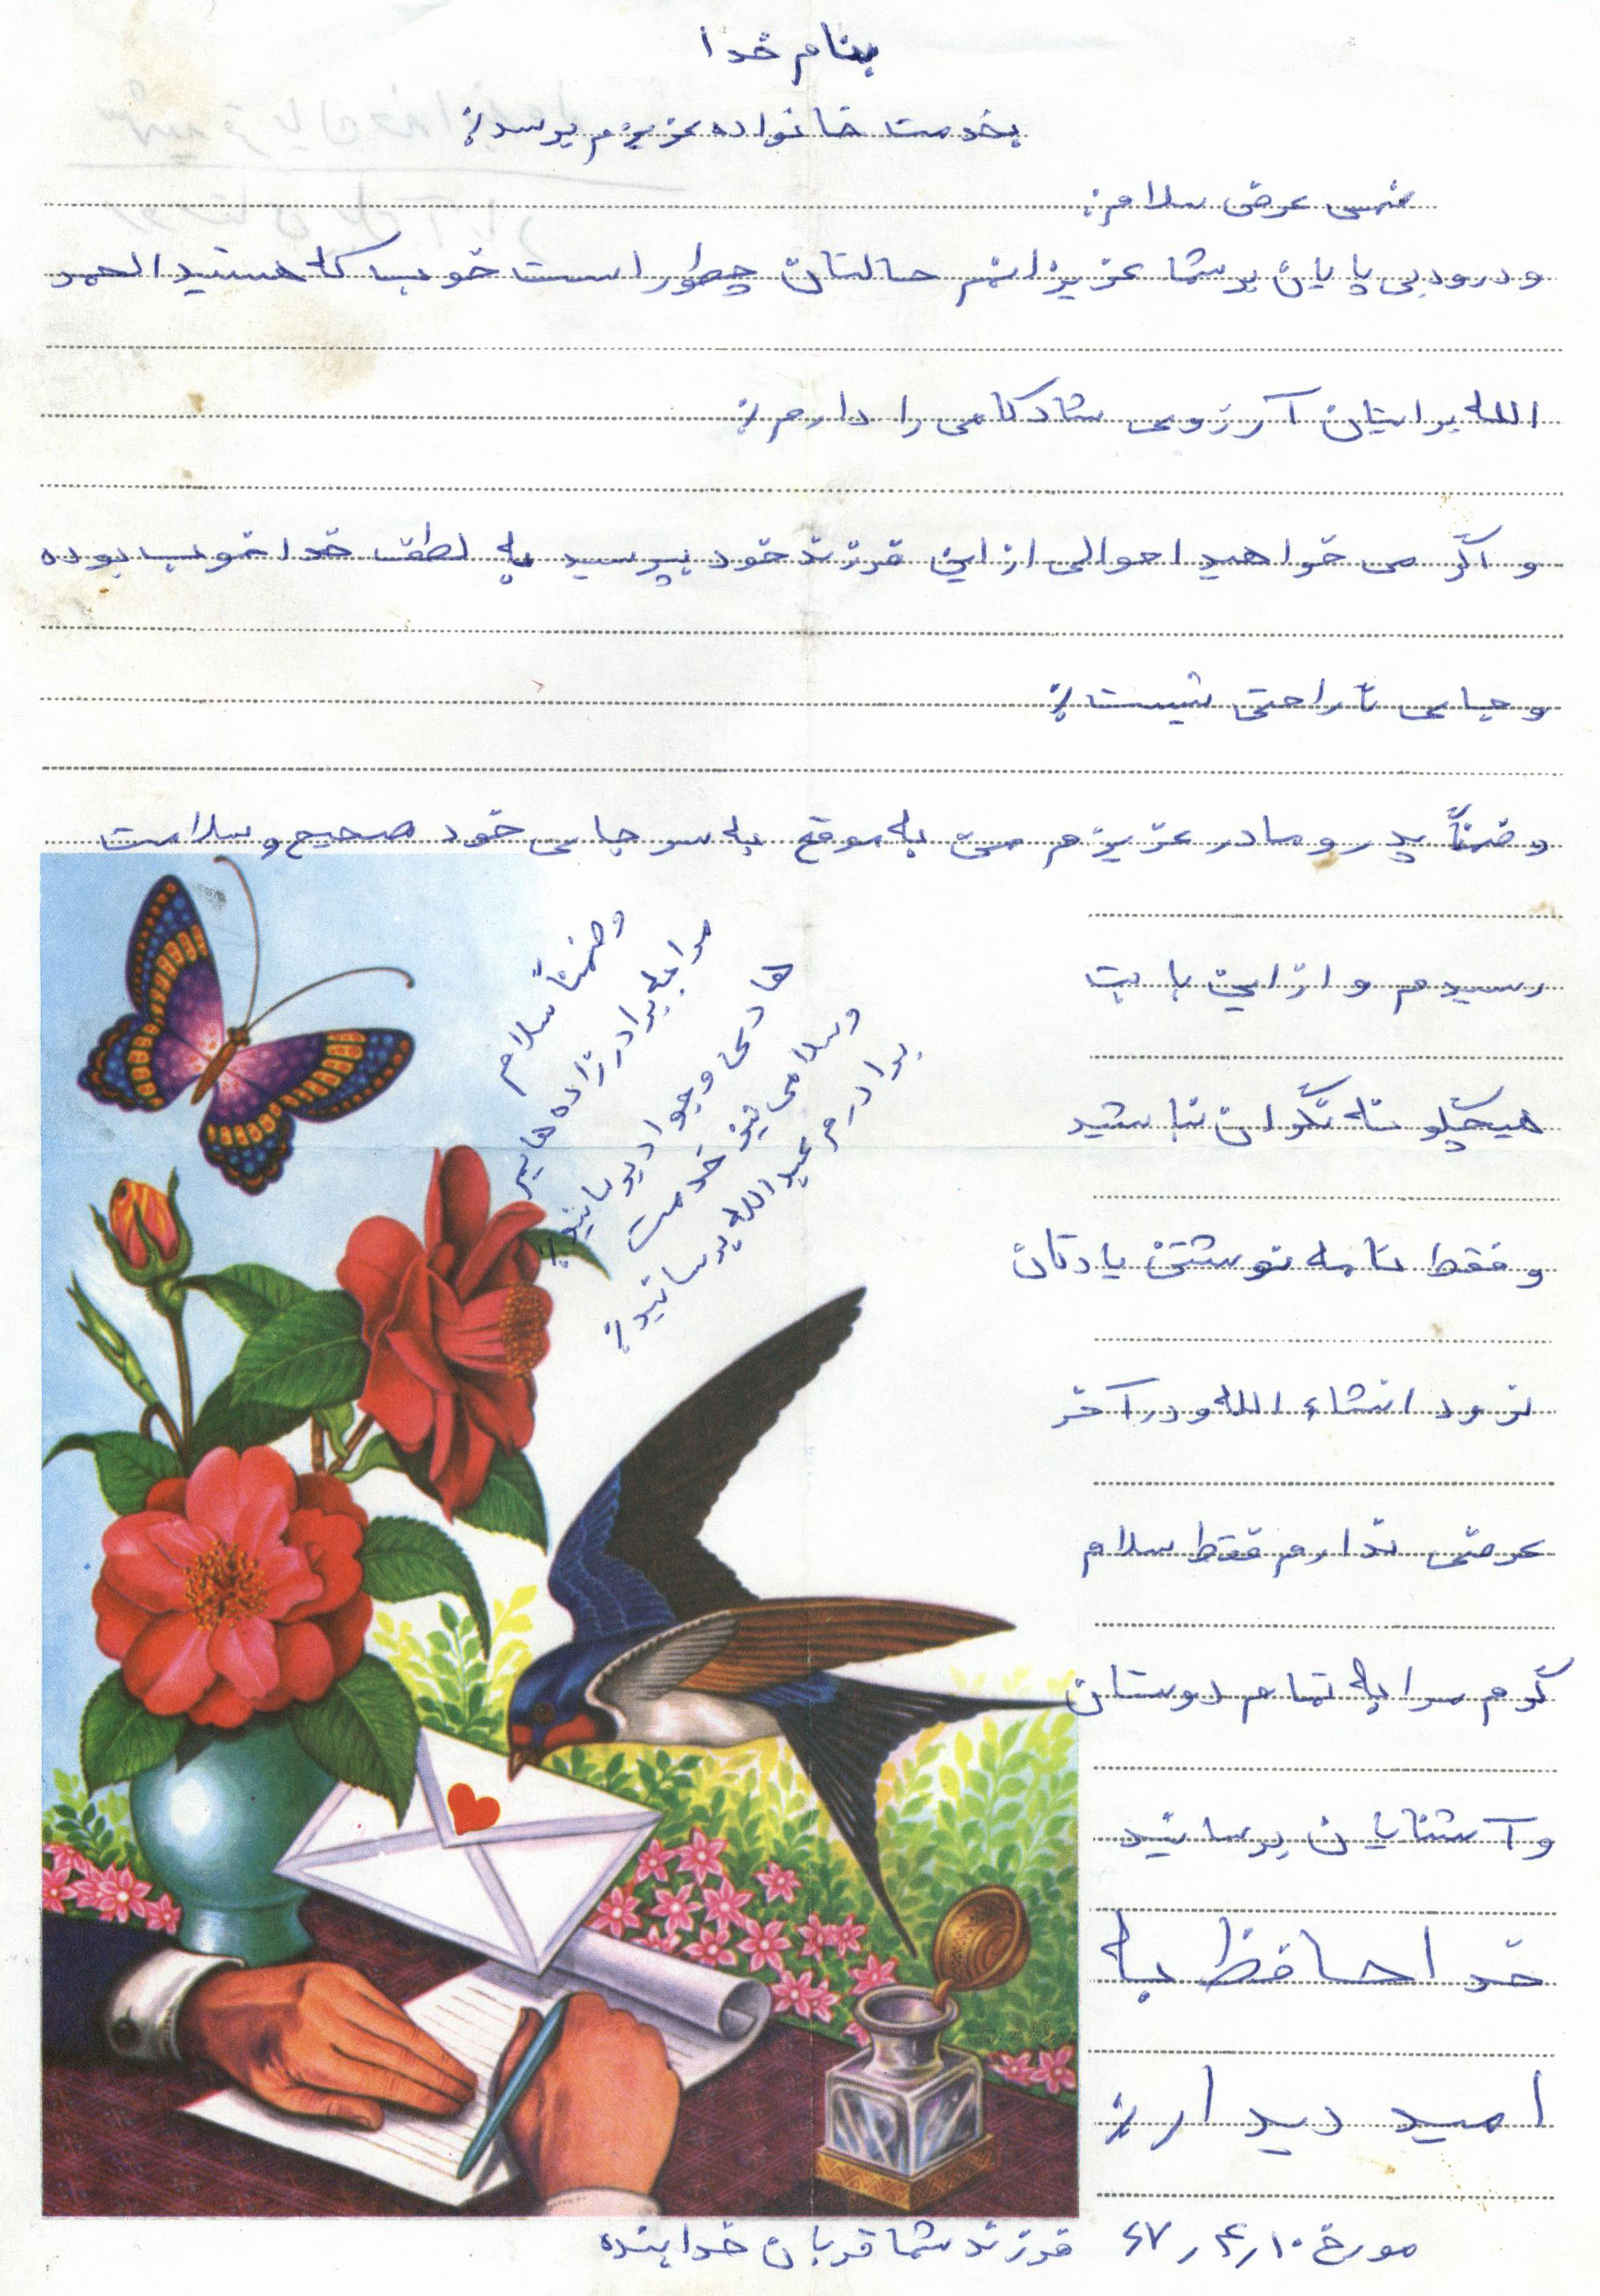 بنام خدا
بخدمت خانواده عزیزم برسد؛
ضمن عرض سلام؛
و درود بی پایان بر شما عزیزانم حالتان چطور است خوب که هستید الحمد
الله برایتان آرزوی شادکامی را دارم؛
و اگر می خواهید احوالی از این فرزند خود بپرسید به لطف خدا خوب بوده
و جای ناراحتی نیست؛
و ضمناً پدر و مادر عزیزم من به موقع به سر جای خود صحیح و سلامت
رسیدم و از این بابت
هیچگونه نگران نباشید
و فقط نامه نوشتن یادتان
نرود انشاء الله و در آخر
عرضی ندارم فقط سلام
گرم مرا به تمام دوستان
و آشنایان برسانید
خداحافظ به
امید دیدار؛
وضمناً سلام
مرا به برادرزاده هایم
هادی و جواد برسانید؛
و سلامی نیز خدمت
برادرم عبدالله برسانید؛
مورخ ۱۰ر۴ر۶۷ فرزند شما قربان خدابنده